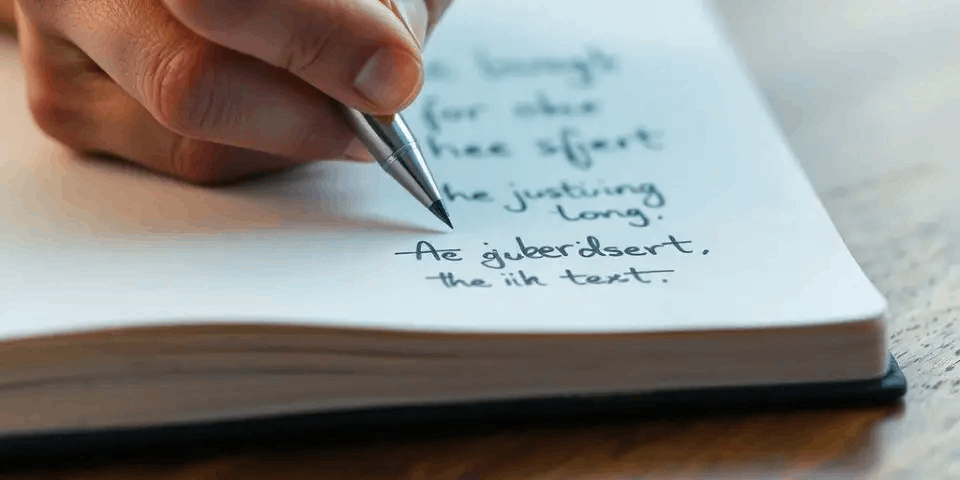 for
hee sfert
he justiving
long.
Ae guberdsert.
the iih text.